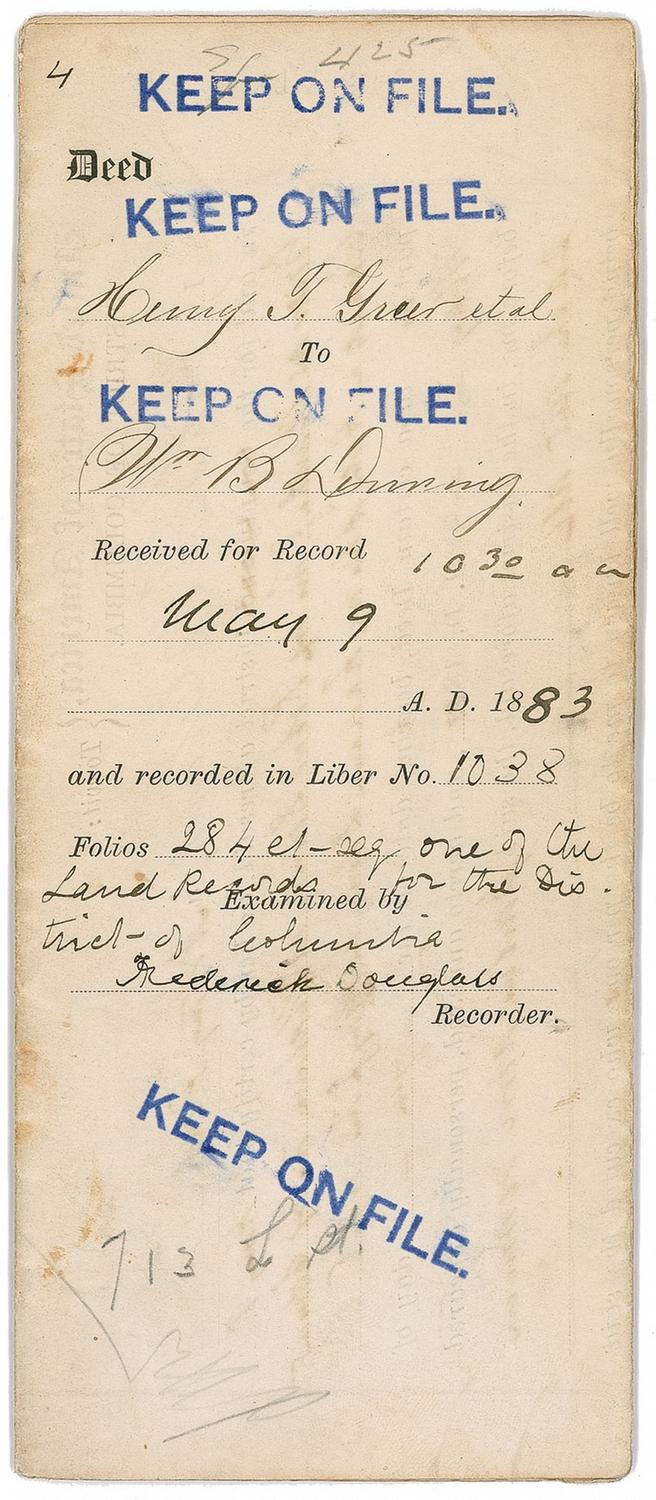 425
4
KEEP ON FILE.
Deed
KEEP ON FILE.
Henry T. Greer et al
To
KEEP ON FILE.
Wm B
Received for Record 10 30 a m
May 9
A. D. 1883
and recorded in Liber No. 1038
Folios 284 et-seq one of the
Land Records for the Dis-
Examined by
trict of Columbia
Frederick Douglass
Recorder.
KEEP ON FILE.
713 L St.